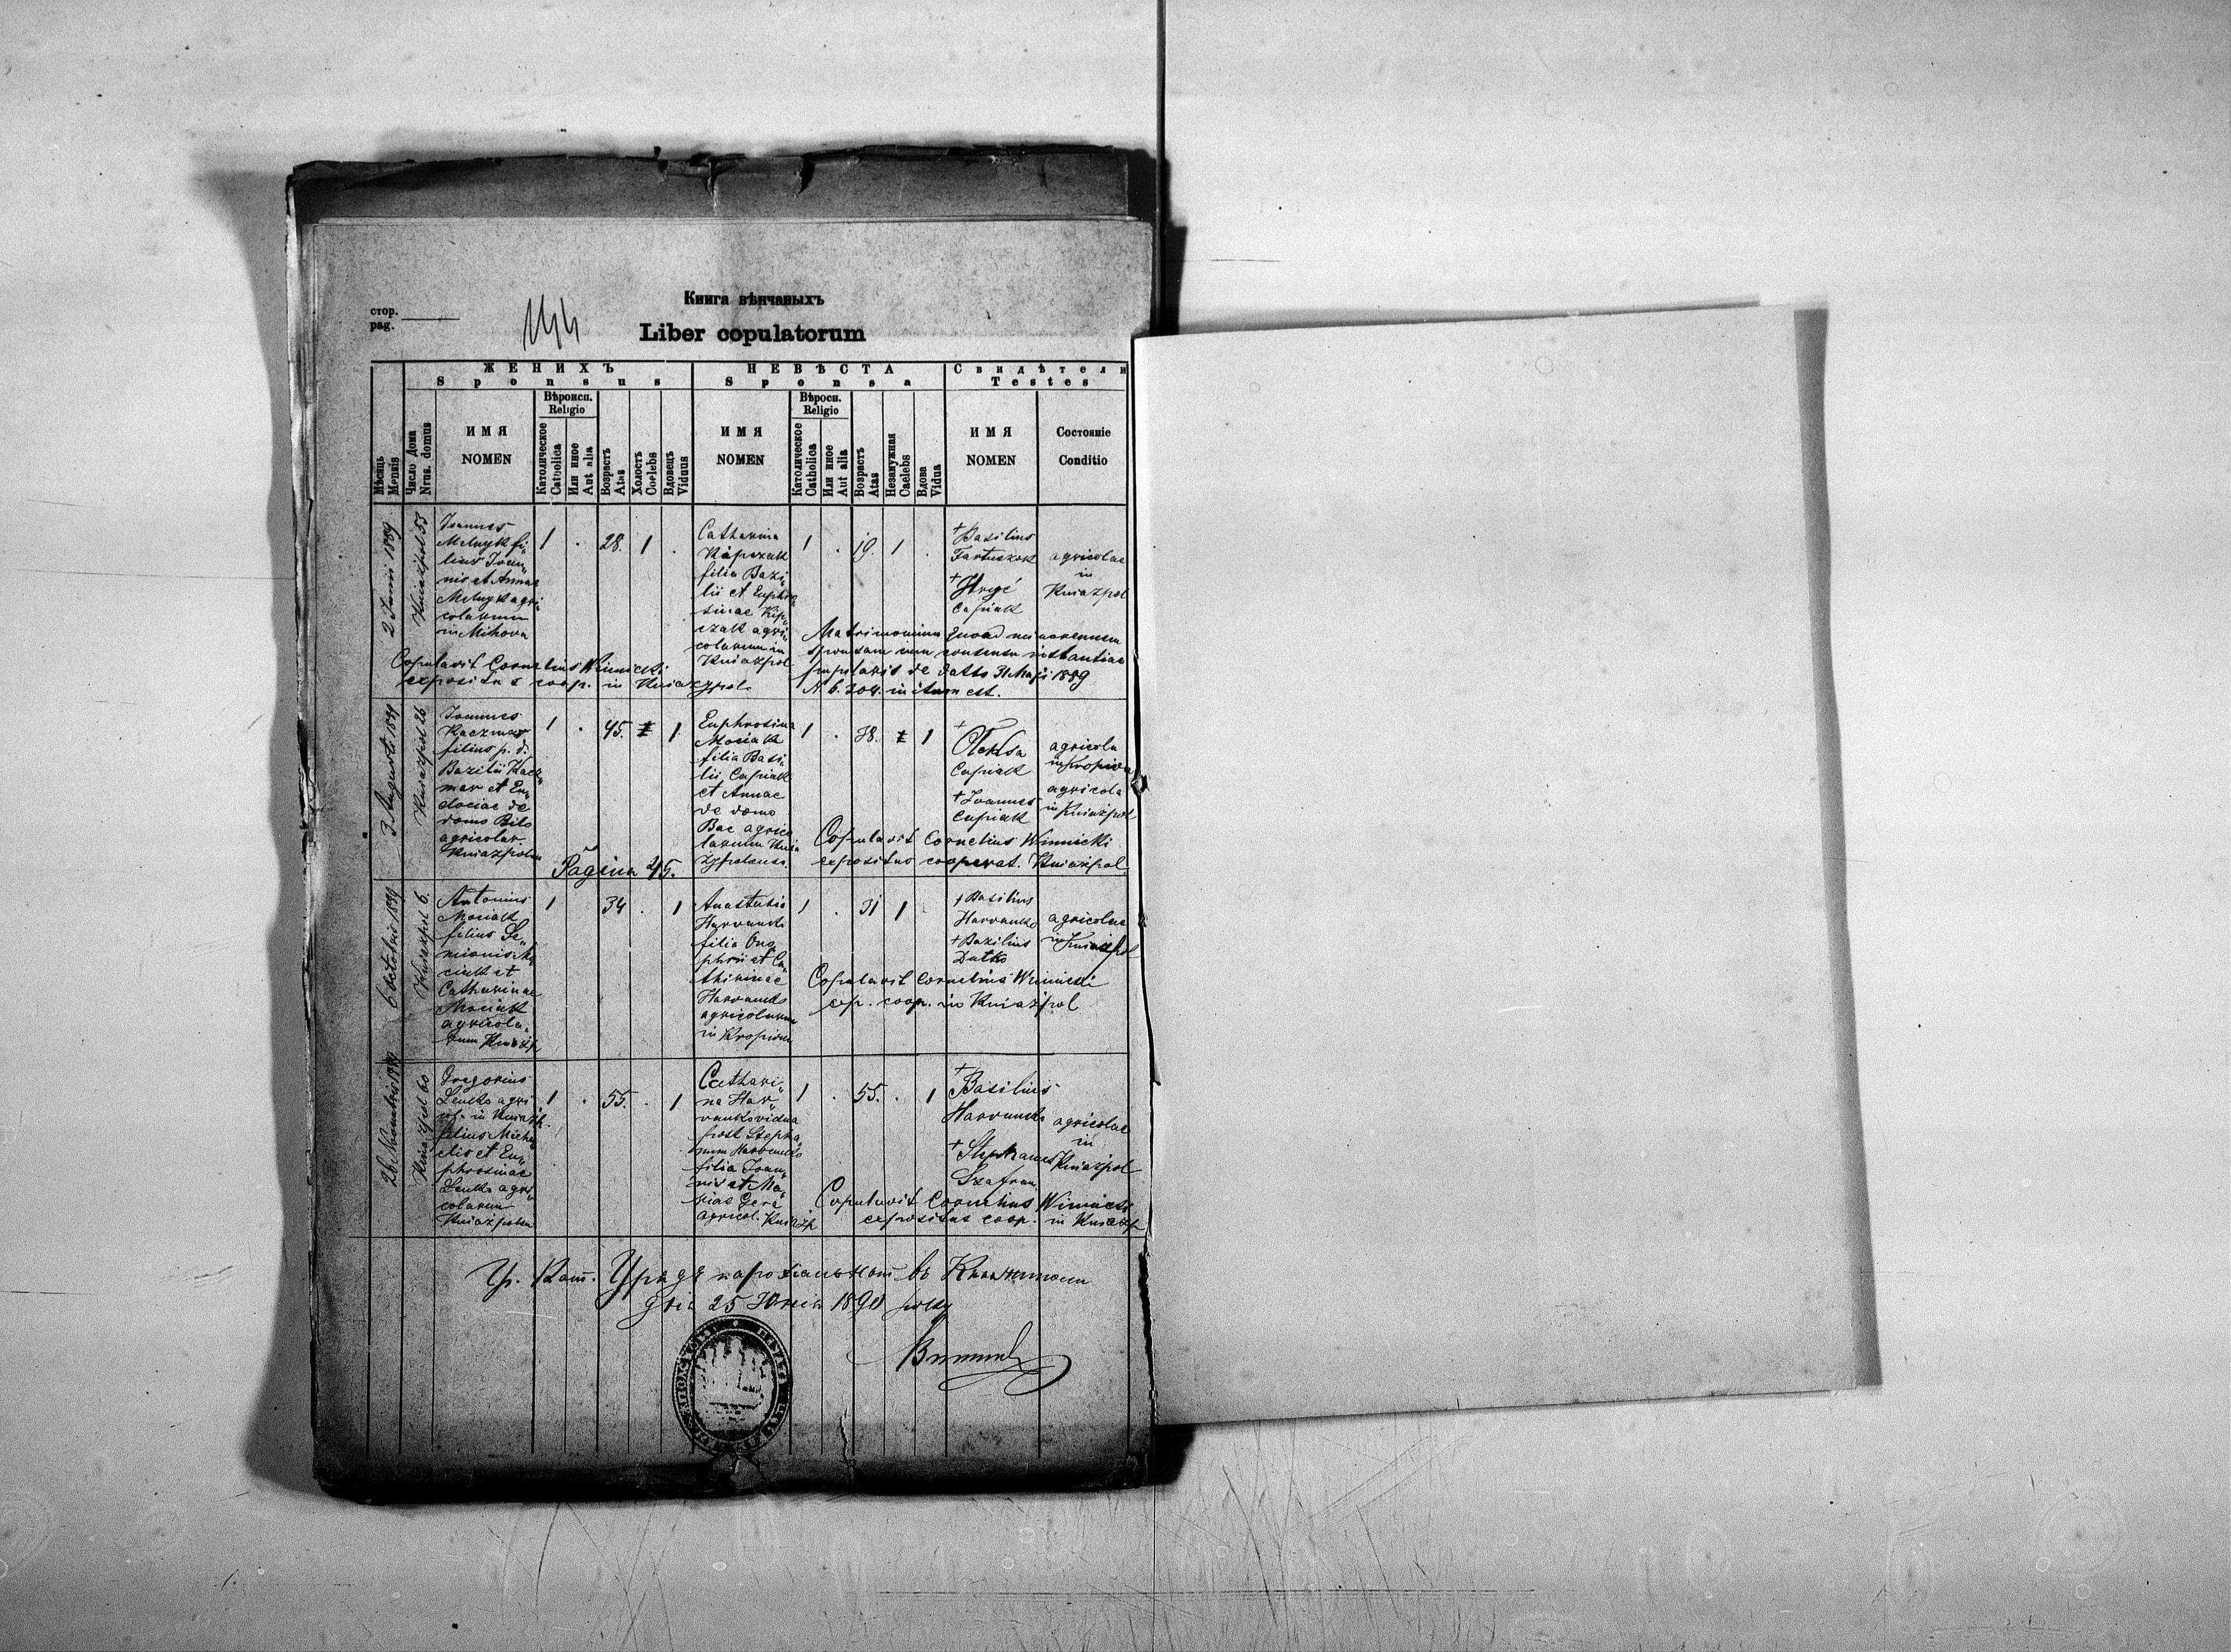 Книга вѣнчаныхъ
стор.
pag.
144
Liber copulatorum
ЖЕНИХЪ
Sponsus
НЕВѢСТА
Sponsa
Свидѣтели
Testes
Мѣсяць
Mensis
Число Дома
Nrus. domus
ИМЯ
NOMEN
Вѣроисп.
Religio
Католическое
Catholica
Или иное
Aut alia
Возрастъ
Atas
Холостъ
Coelebs
Вдовецъ
Viduus
ИМЯ
NOMEN
Вѣросп.
Religio
Католическое
Catholica
Или иное
Aut alia
Возрастъ
Atas
Незамужная
Caelebs
Вдова
Vidua
ИМЯ
NOMEN
Состояніе
Conditio
2 Junii 1889
Kniazpol 53
Joannes
Melnyk fi„
lius Joan„
nis et Annae
Melnyk agri„
colarum
in Mihova
1 . 28. 1 .
Catharina
Kipczak
filia Bazi„
lii et Euphro„
sinae Kip„
czak agri„
colarum in
Kniazpol
1 . 19. 1 .
+ Basilius
+ Hryć
Capiak
agricolae
in
Kniazpol
Copulavit Cornelius Winnicki
expositus coop. in Kniazpol
Matrimonium quoad minorennem
sponsam cum consensu instantiae
pupilaris de datto 31 Maji 1889
N 6.204. initum est.
3 Augusti 1889
Kniazpol 26
Joannes
Kaczmar
filius p. d.
Bazilii Kacz„
mar et Eu„
dociae de
domo Bilo
agricolar.
Kniazpolen
1 . 45. 1 1
Euphrosina
Mociak
filia Basi„
lii Capiak
et Annae
de domo
Bac agrico
larum Knia
zpolensi.
1 . 38. 1 1
+
Oleksa
Capiak
+ Joannes
Capiak
agricola
in Kropivn
agricola
in Kniazpol
Copulavit Cornelius Winnicki
expositus cooperat. Kniazpol
Pagina 45.
6 Octobris 1889
Kniazpol 6.
Antonius
Mociak
filius Se„
mionis Mo„
ciak et
Catharinae
Mociak
agricola„
rum Kniazp
1 34 . 1
Anastasia
Havranko
filia Ono
phrii et Ca„
tharinae
Havranko
agricolarum
in Kropivn
1 . 31 1
+ Basilius
Havranko
+ Bazilius
Datko
agricolae
in Kniazpol
Copulavit Cornelius Winnicki
exp. coop. in Kniazpol
26 Novembris 1889
Kniazpol 60
Gregorius
Lenko agri
col. in Kniazp.
filius Micha„
elis et Eu„
phrosinae
Lenko agri„
colarum
Kniazpolen
1 . 55. . 1
Cathari„
na Hav„
ranko vidua
post Stepha„
num Havranko
filia Joan„
nis et Ma„
riae Gera
agricol. Kniazp
1 . 55. . 1
+
Basilius
Havranko
+ Stephanus
Szafran
agricolae
in
Kniazpol
Copulavit Cornelius Winnicki
expositus coop. in Kniazp
Гр. Кат. Урядъ парохіальный въ Княжполи
дня 25 Юнія 1890 року